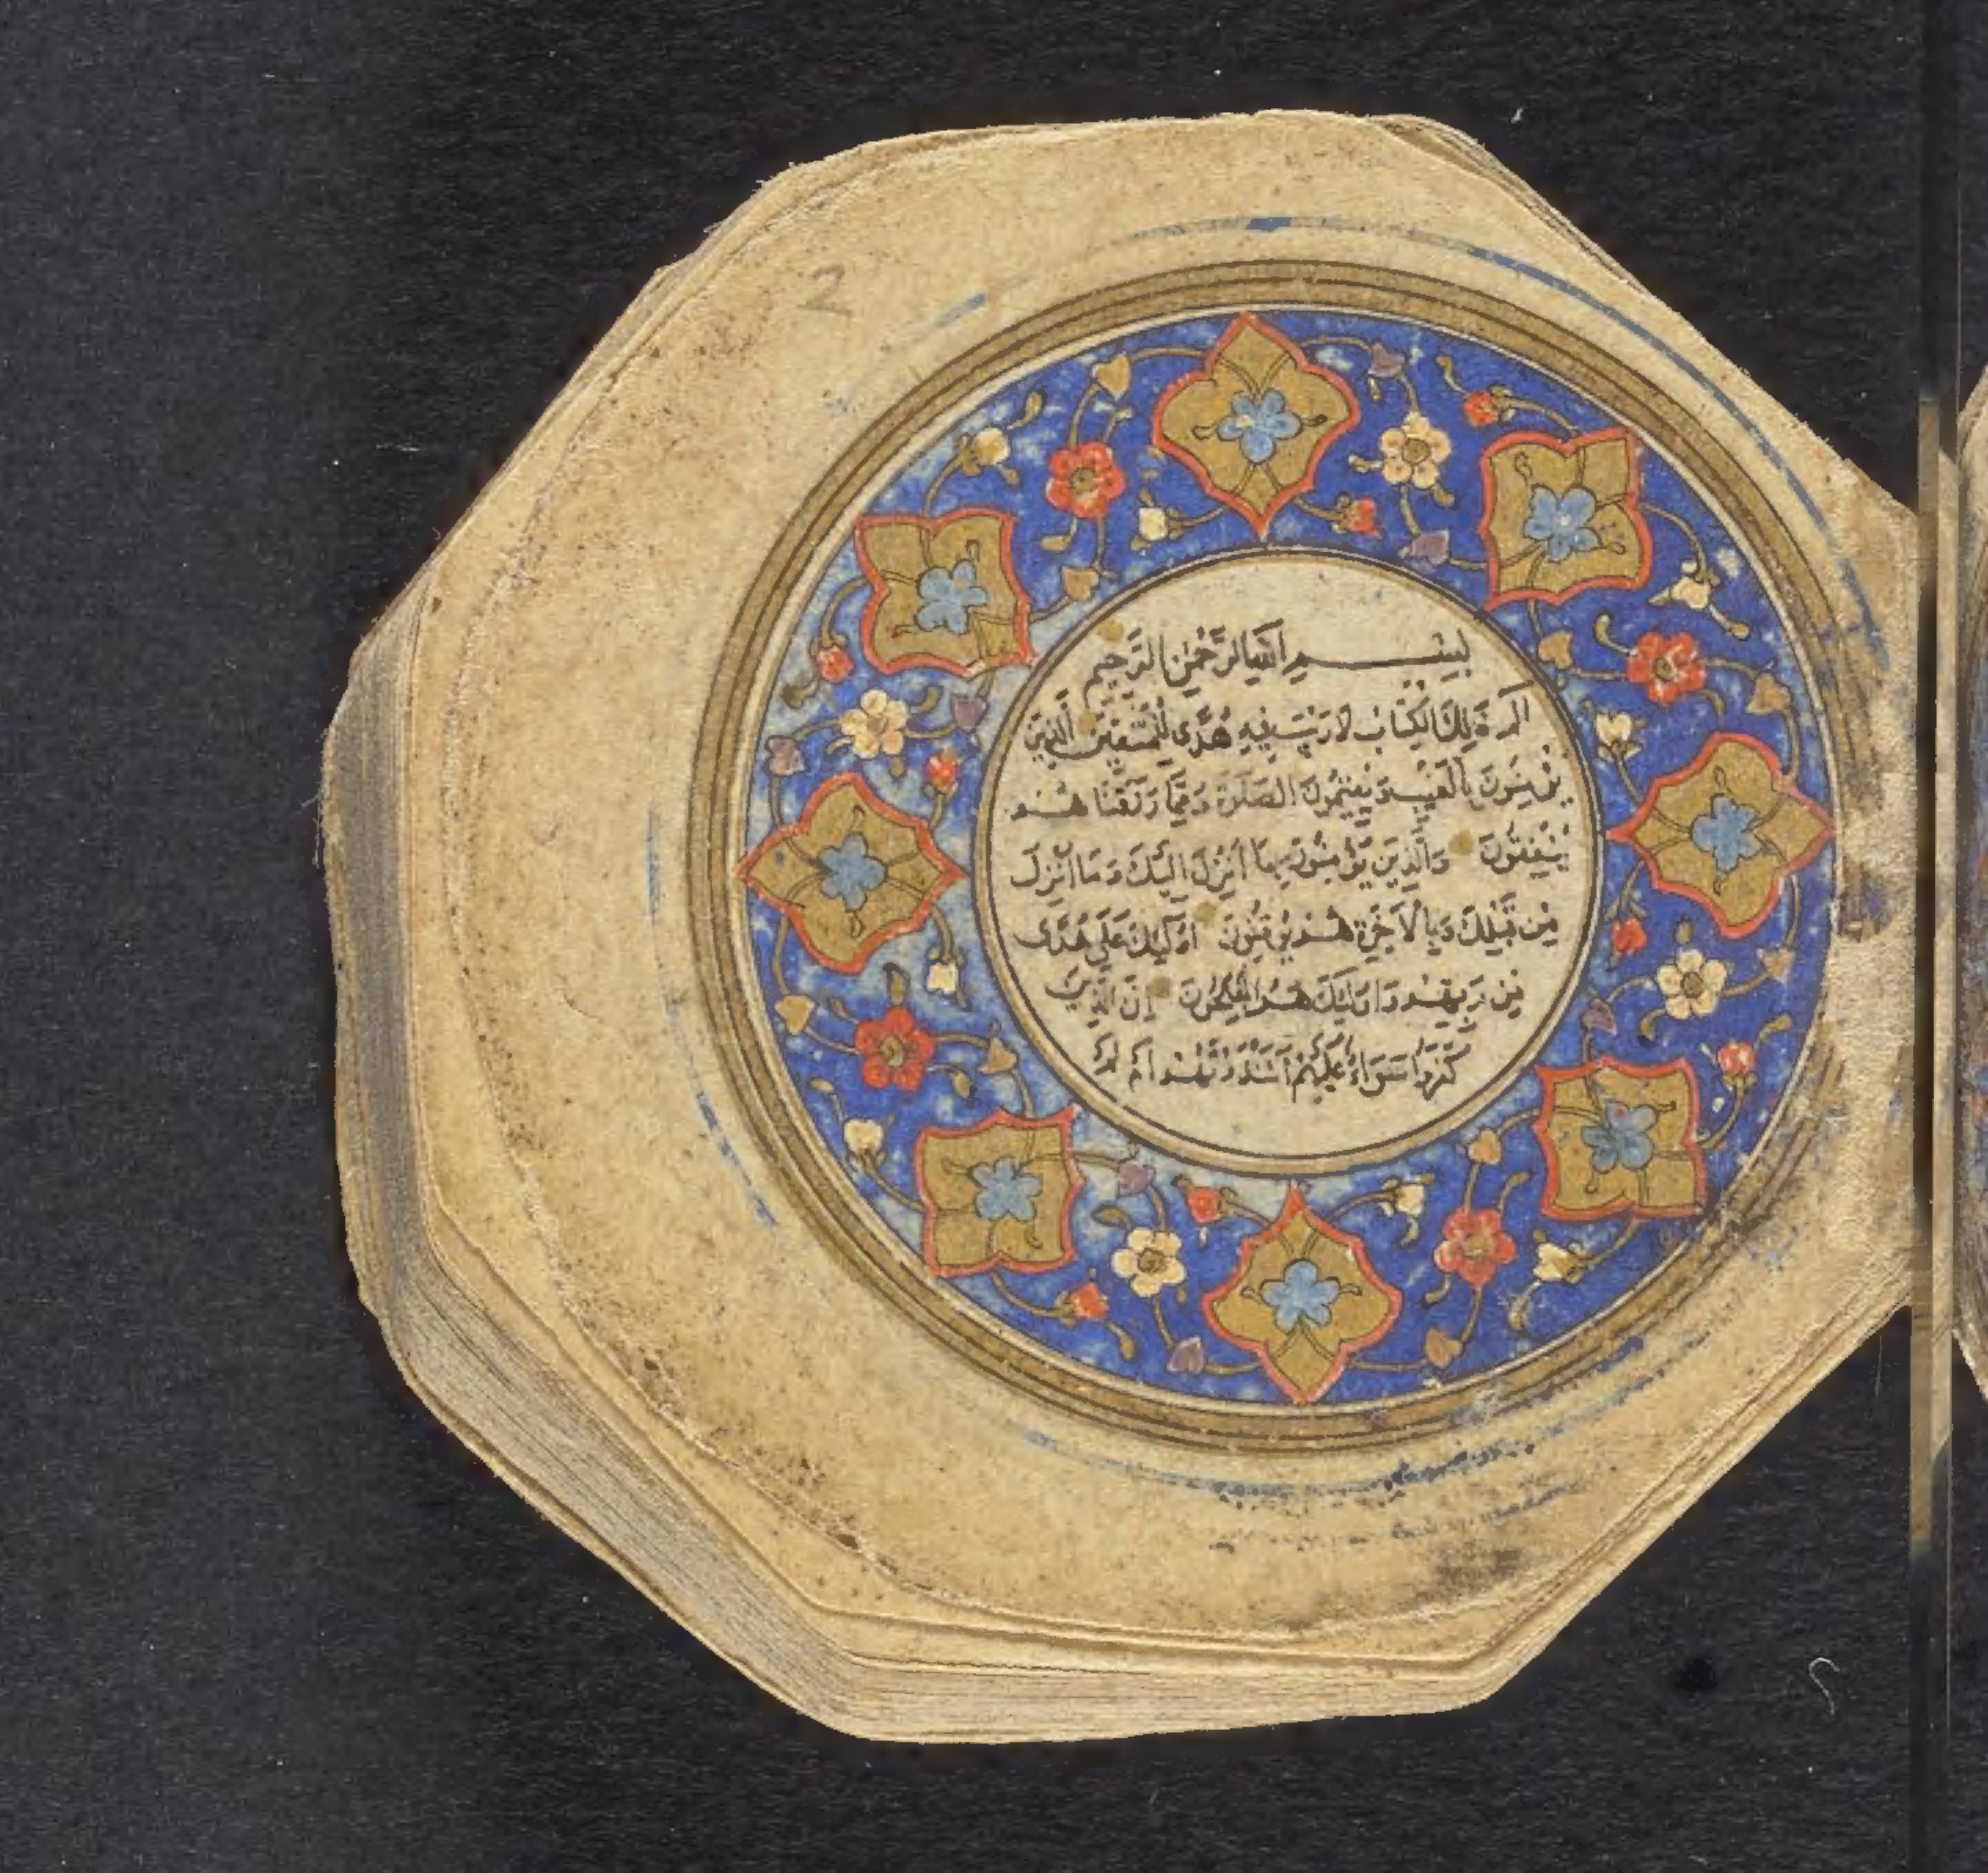 2
بِسْمِ اللَّهِ الرَّحْمٰنِ الرَّحِيمِ
الم ذَلِكَ الْكِتَابُ لَا رَيْبَ فِيهِ هُدًى لِلْمُتَّقِينَ الَّذِينَ
يُؤْمِنُونَ بِالْغَيْبِ وَيُقِيمُونَ الصَّلَوةَ وَمِمَّا رَزَقْنَاهُمْ
يُنْفِقُونَ وَالَّذِينَ يُؤْمِنُونَ بِمَا أُنْزِلَ إِلَيْكَ وَمَا أُنْزِلَ
مِنْ قَبْلِكَ وَبِالْآخِرَةِ هُمْ يُوقِنُونَ أُولَئِكَ عَلَى هُدًى
مِنْ رَبِّهِمْ وَأُولَئِكَ هُمُ الْمُفْلِحُونَ إِنَّ الَّذِينَ
كَفَرُوا سَوَاءٌ عَلَيْهِمْ ءَأَنْذَرْتَهُمْ أَمْ لَمْ